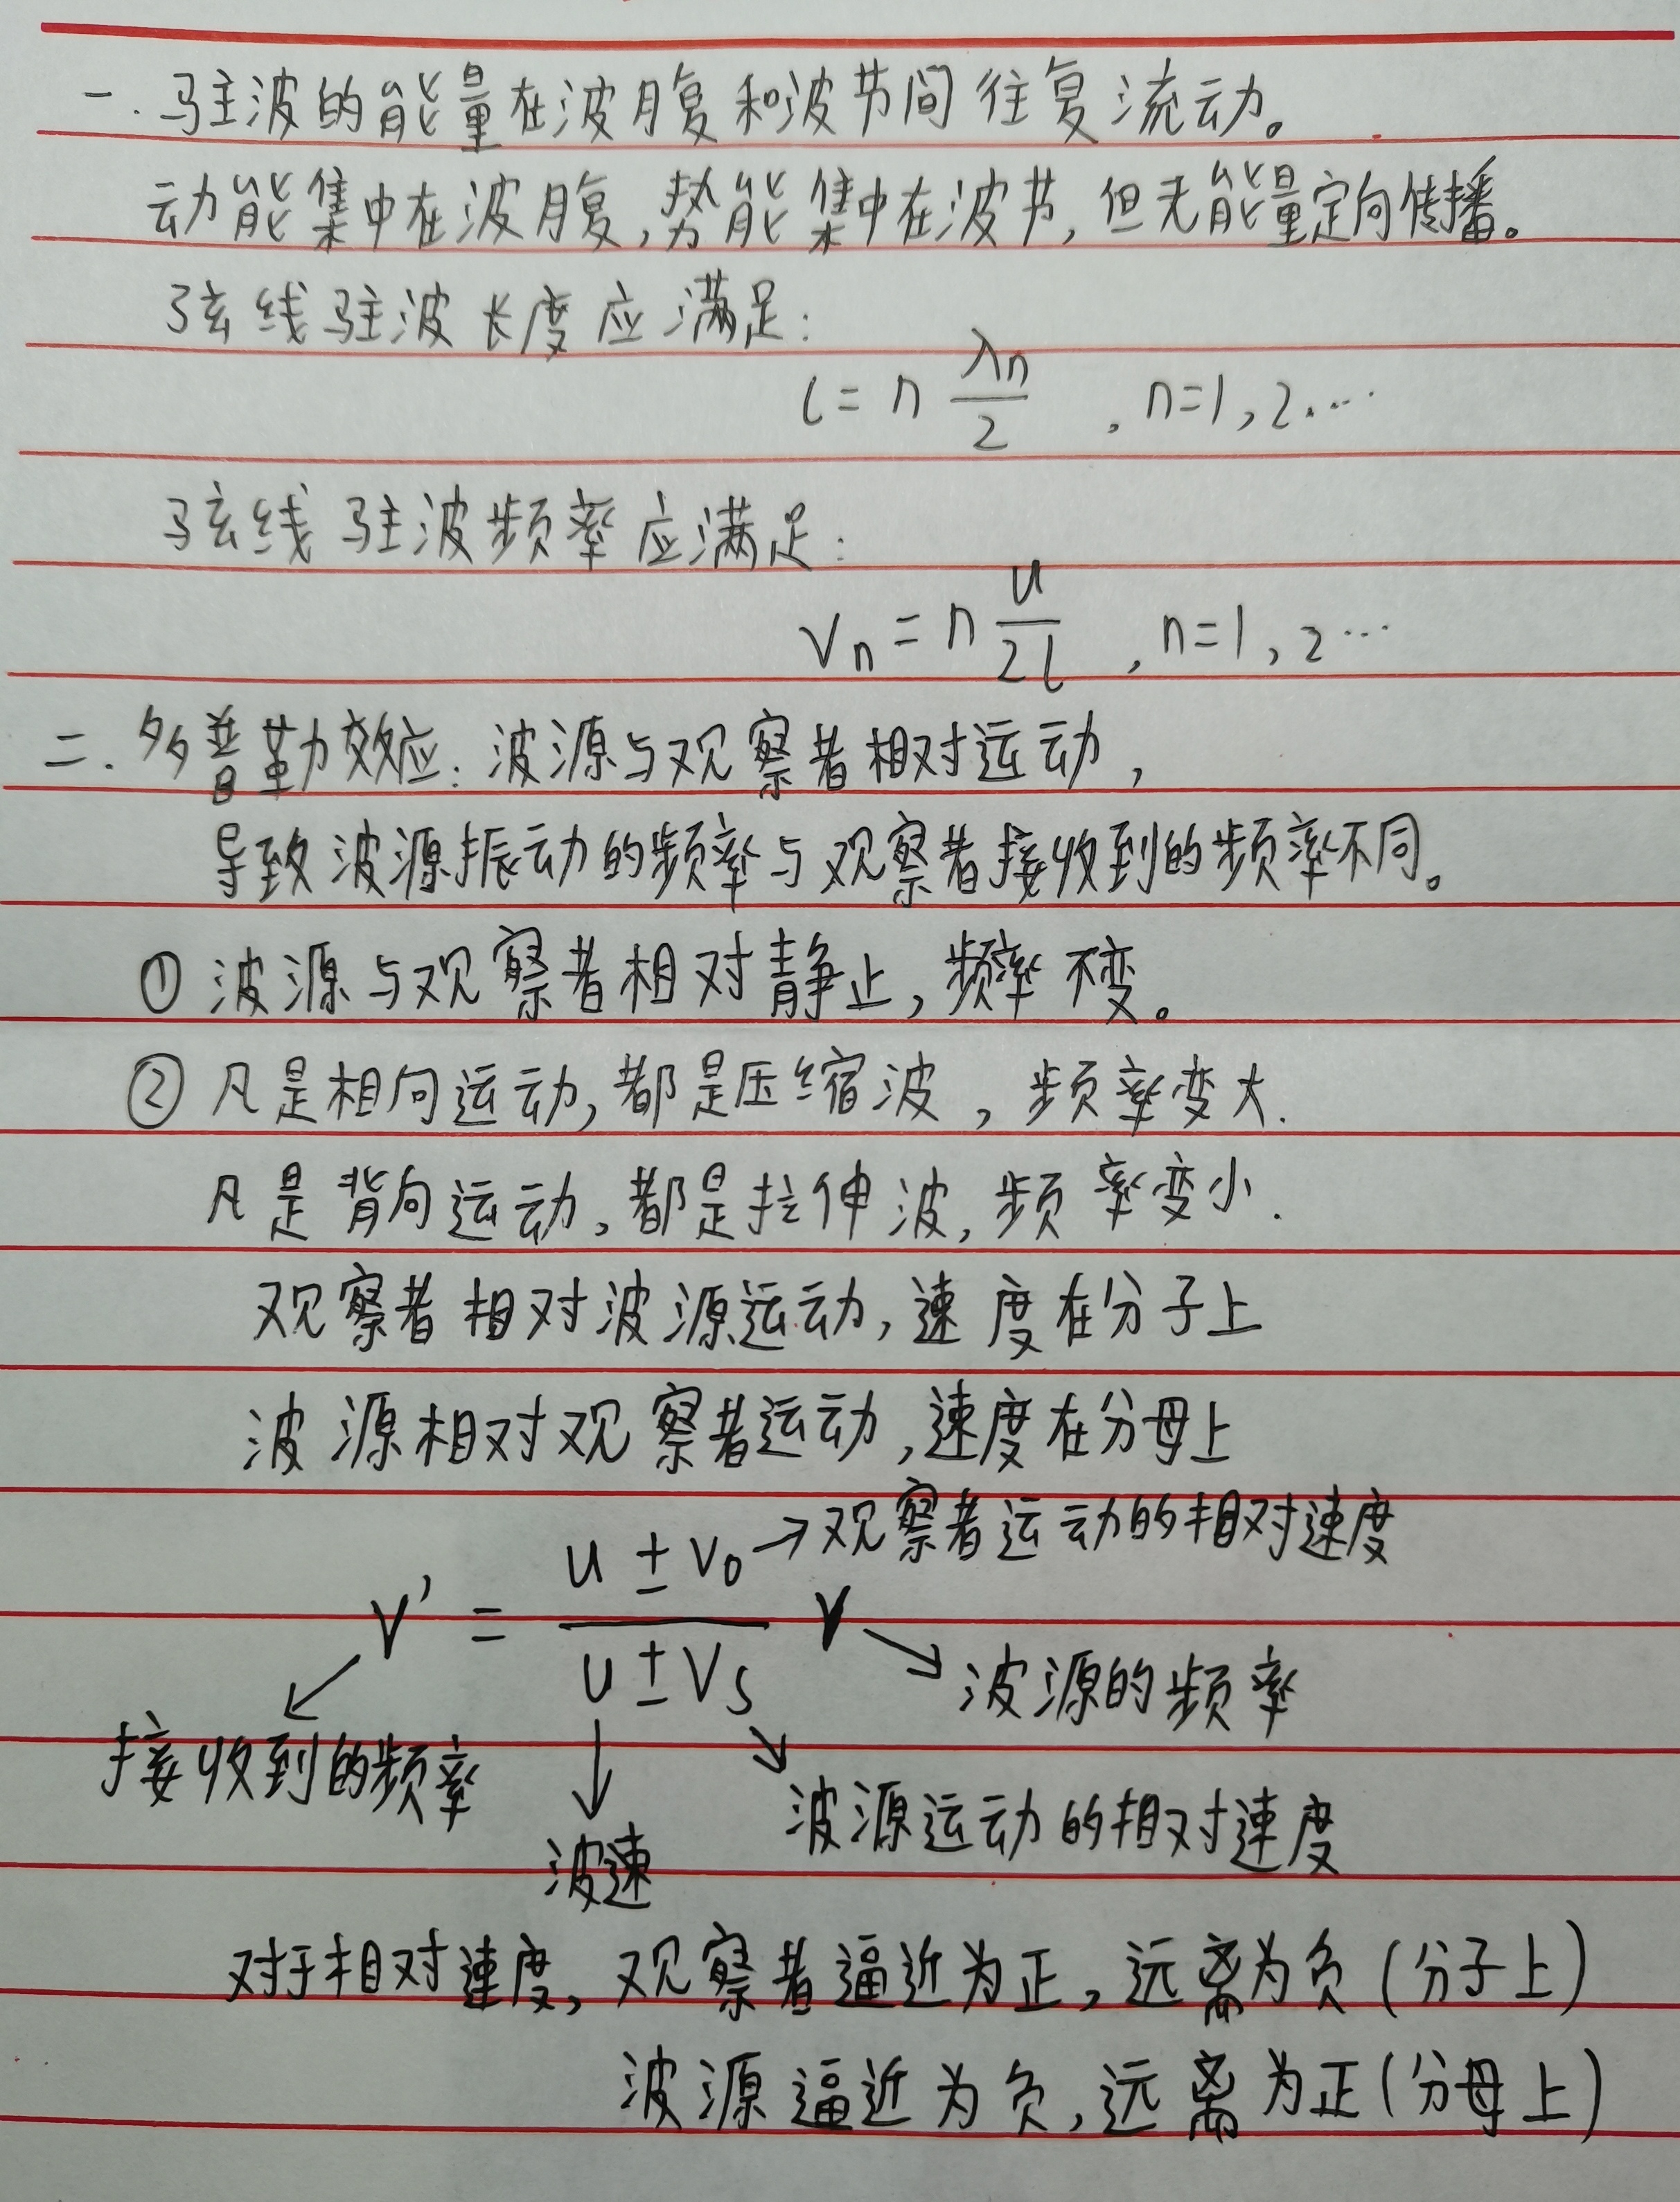 一. 驻波的能量在波腹和波节间往复流动。
动能集中在波腹,势能集中在波节,但无能量定向传播。
弦线驻波长度应满足:
l = n λn/2 , n=1,2...
弦线驻波频率应满足:
νn = n u/2l , n=1,2...
二. 多普勒效应: 波源与观察者相对运动,
导致波源振动的频率与观察者接收到的频率不同。
① 波源与观察者相对静止,频率不变。
② 凡是相向运动,都是压缩波,频率变大.
凡是背向运动,都是拉伸波,频率变小.
观察者相对波源运动,速度在分子上
波源相对观察者运动,速度在分母上
ν' = (u ± v₀)/(u ± vs) ν
→观察者运动的相对速度
↘波源的频率
↙接收到的频率
↓波速
↘波源运动的相对速度
对于相对速度,观察者逼近为正,远离为负(分子上)
波源逼近为负,远离为正(分母上)